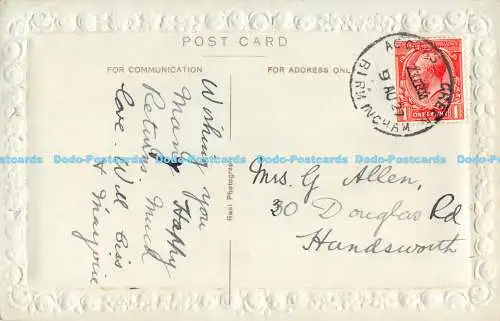 POST CARD
FOR COMMUNICATION
FOR ADDRESS ONLY
Wishing you
Many Happy
Returns. Much
love. Will, Ciss
& Marjorie
Real Photograph
Mrs. G Allen,
30 Douglas Rd
Handsworth
BIRMINGHAM
9 AU 27
Dodo-Postcards Dodo-Postcards Dodo-Postcards Dodo-Postcards Dodo-Postcards Dodo-Postcards